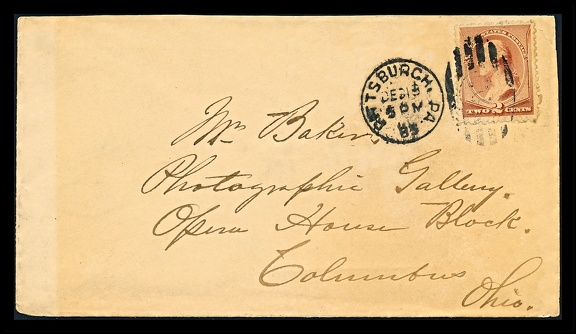 UNITED STATES POSTAGE
TWO 2 CENTS
PITTSBURGH. PA.
DEC 15
5 PM
85
Mr Baker,
Photographic Gallery.
Opera House Block.
Columbus
Ohio.